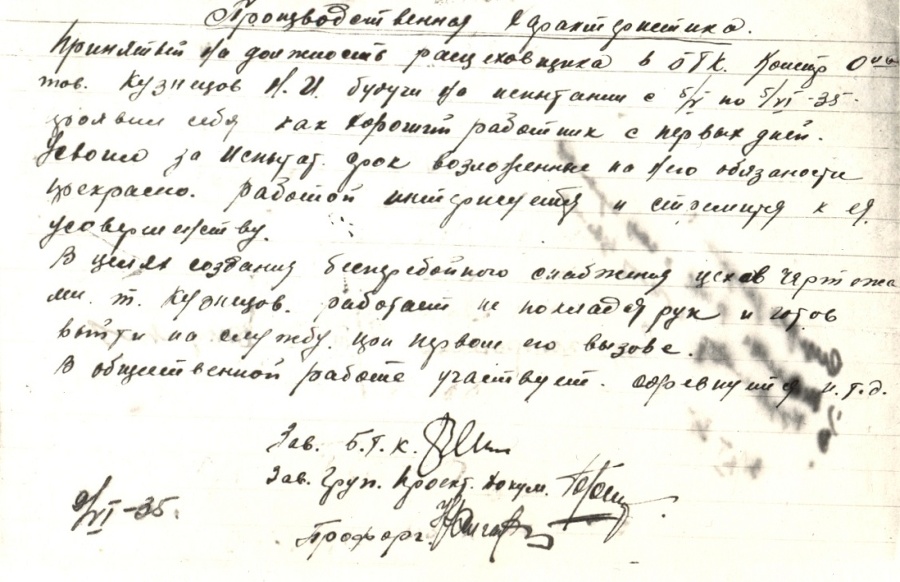 Производственная Характеристика.
Принятый на должность расцеховщика в ОТК. Констр
тов. Кузнецов Н. И. будучи на испытании с 5/V по 5/VI-35-
проявил себя как хороший работник с первых дней.
Усвоил за испытат. срок возложенные на него обязаности
прекрасно. Работой интерисуется и стремится к её
усовершенству.
В целях создания бесперебойного снабжения цехов чертежа
ми. т. Кузнецов. работает не покладая рук и готов
выйти на службу. при первом его вызове.
В общественной работе участвует. соревнуется и.т.д.
Зав. Б.Т.К.
Зав. Груп. Проект. Докум.
9/VI-35.
Профорг.